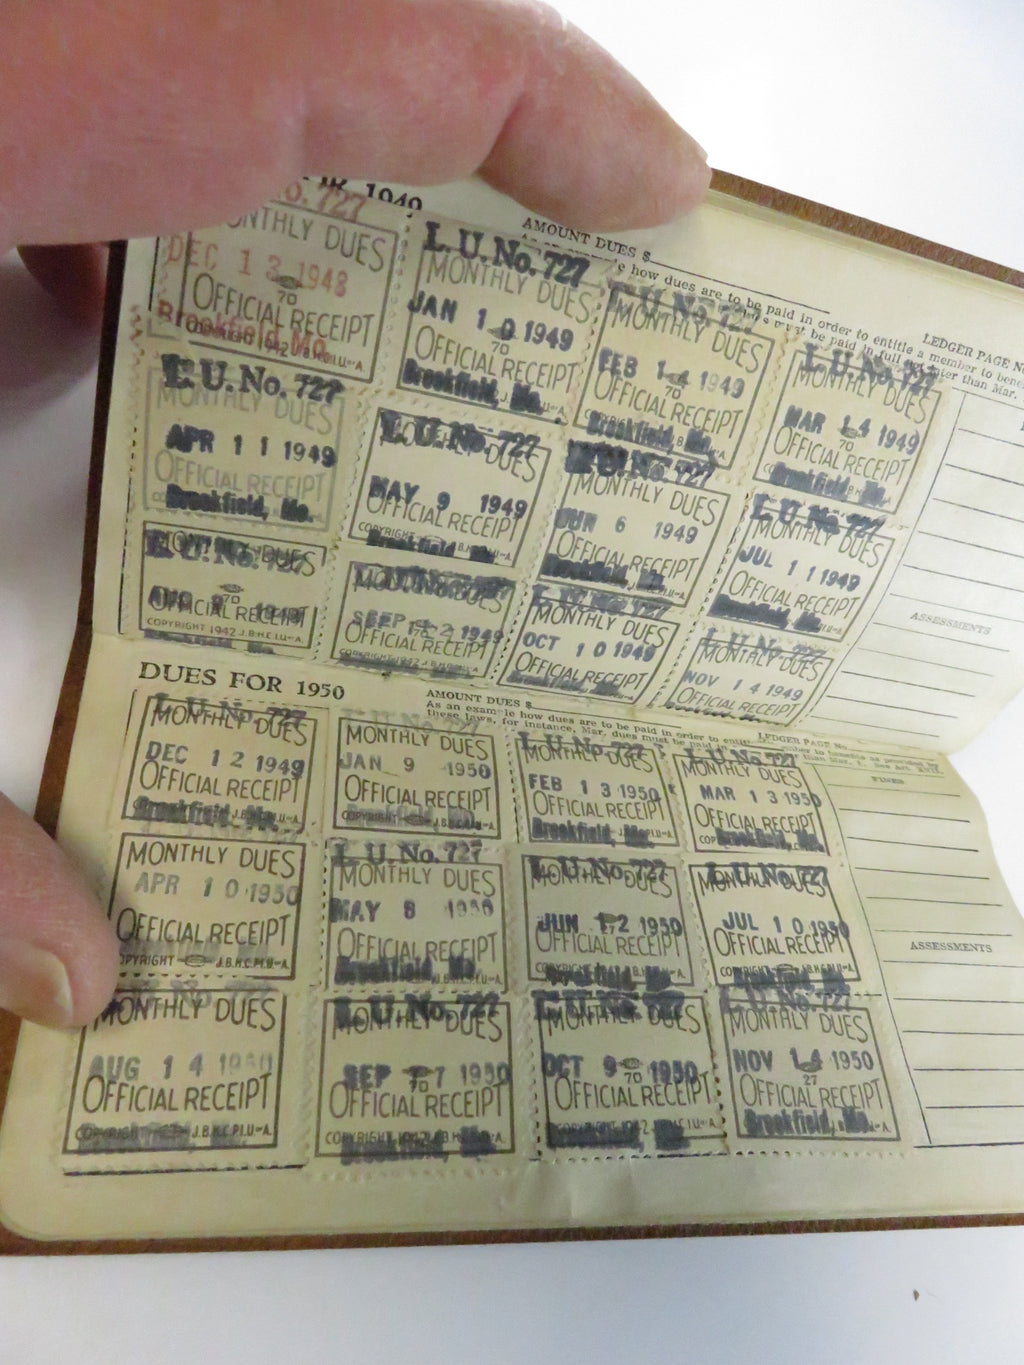 1949
AMOUNT DUES $
how dues are to be paid in order to entitle a member to
must be paid in full
than Mar.
LEDGER PAGE
No. 727
MONTHLY DUES
DEC 13 1948
70
OFFICIAL RECEIPT
Brookfield, Mo.
L. U. No. 727
MONTHLY DUES
JAN 10 1949
70
OFFICIAL RECEIPT
Brookfield, Mo.
L. U. No. 727
MONTHLY DUES
FEB 14 1949
70
OFFICIAL RECEIPT
Brookfield, Mo.
L. U. No. 727
MONTHLY DUES
MAR 14 1949
70
OFFICIAL RECEIPT
Brookfield, Mo.
L. U. No. 727
MONTHLY DUES
APR 11 1949
OFFICIAL RECEIPT
Brookfield, Mo.
L. U. No. 727
DUES
MAY 9 1949
OFFICIAL RECEIPT
COPYRIGHT
Brookfield
L. U. No. 727
MONTHLY DUES
JUN 6 1949
OFFICIAL RECEIPT
Brookfield, Mo.
L. U. No. 727
MONTHLY DUES
JUL 11 1949
OFFICIAL RECEIPT
Brookfield, Mo.
L. U. No. 727
MONTHLY DUES
AUG 1949
OFFICIAL RECEIPT
COPYRIGHT 1942 J.B.H.C.I.U. of A.
MONTHLY DUES
SEP 12 1949
OFFICIAL RECEIPT
L. U. No. 727
MONTHLY DUES
OCT 10 1949
OFFICIAL RECEIPT
L. U. No. 727
MONTHLY DUES
NOV 14 1949
OFFICIAL RECEIPT
ASSESSMENTS
DUES FOR 1950
AMOUNT DUES $
As an example how dues are to be paid in order to
these laws, for instance, Mar. dues must be paid
than Mar. 1. See Art.
LEDGER PAGE No.
FINES
L. U. No. 727
MONTHLY DUES
DEC 12 1949
OFFICIAL RECEIPT
Brookfield, Mo.
L. U. No. 727
MONTHLY DUES
JAN 9 1950
OFFICIAL RECEIPT
COPYRIGHT
L. U. No. 727
MONTHLY DUES
FEB 13 1950
OFFICIAL RECEIPT
Brookfield, Mo.
L. U. No. 727
MONTHLY DUES
MAR 13 1950
OFFICIAL RECEIPT
Brookfield, Mo.
MONTHLY DUES
APR 10 1950
OFFICIAL RECEIPT
COPYRIGHT J.B.H.C.P.I.U. of A.
L. U. No. 727
MONTHLY DUES
MAY 8 1950
OFFICIAL RECEIPT
Brookfield, Mo.
L. U. No. 727
MONTHLY DUES
JUN 12 1950
OFFICIAL RECEIPT
Brookfield, Mo.
L. U. No. 727
MONTHLY DUES
JUL 10 1950
OFFICIAL RECEIPT
Brookfield, Mo.
ASSESSMENTS
MONTHLY DUES
AUG 14 1950
OFFICIAL RECEIPT
COPYRIGHT J.B.H.C.P.I.U. of A.
L. U. No. 727
MONTHLY DUES
SEP 1950
70
OFFICIAL RECEIPT
COPYRIGHT 1942
Brookfield, Mo.
L. U. No. 727
MONTHLY DUES
OCT 9 1950
70
OFFICIAL RECEIPT
Brookfield, Mo.
L. U. No. 727
MONTHLY DUES
NOV 14 1950
27
OFFICIAL RECEIPT
Brookfield, Mo.